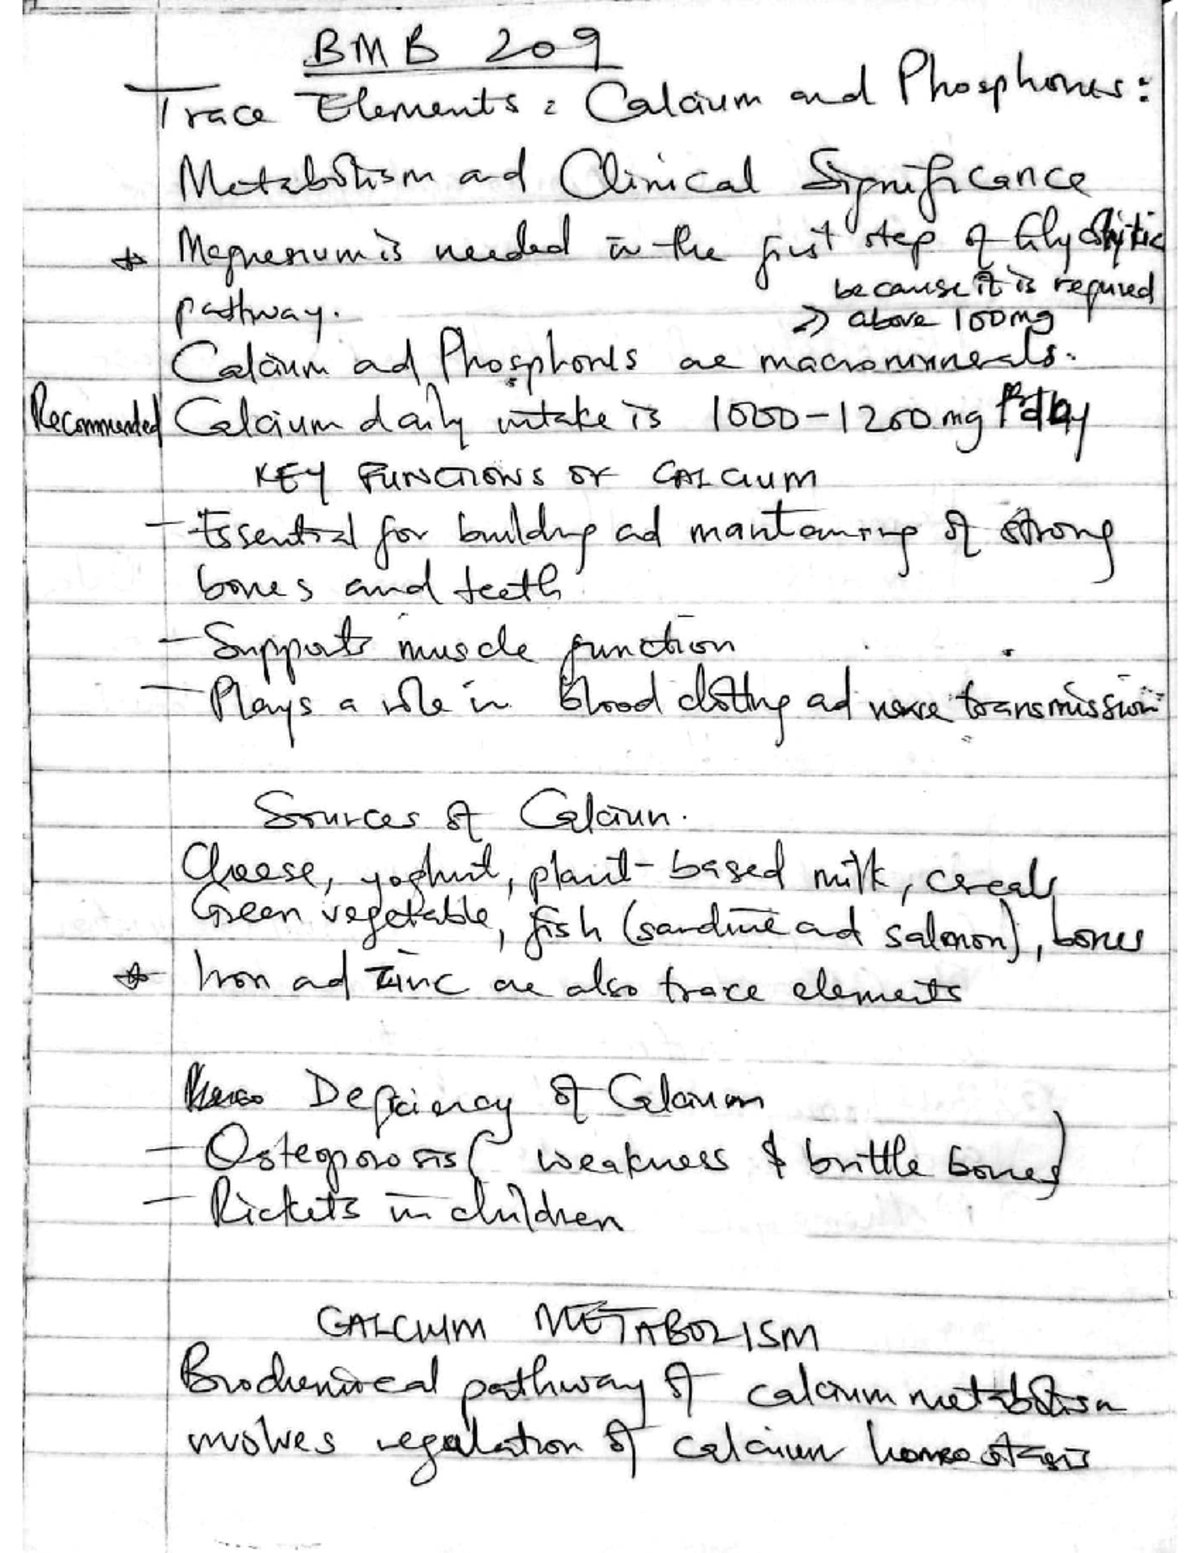 BMB 209
Trace Elements: Calcium and Phosphorus:
Metabolism and Clinical Significance
* Magnesium is needed in the first step of Glycolytic
pathway.
because it is required
=> above 100mg
Calcium ad Phosphorus are macrominerals.
Recommended Calcium daily intake is 1000-1200mg Pday
KEY FUNCTIONS OF CALCIUM
- Essential for building ad mantaining of strong
bones and teeth
- Supports muscle function
- Plays a role in blood clotting ad nerve transmission
Sources of Calcium.
Cheese, yoghurt, plant-based milk, cereals,
Green vegetable, fish (sardine ad salmon), bones
* Iron ad Zinc are also trace elements
Deficiency of Calcium
- Osteoporosis (weakness & brittle bones)
- Rickets in children
CALCIUM METABOLISM
Biochemical pathway of calcium metabolism
involves regulation of calcium homeostasis